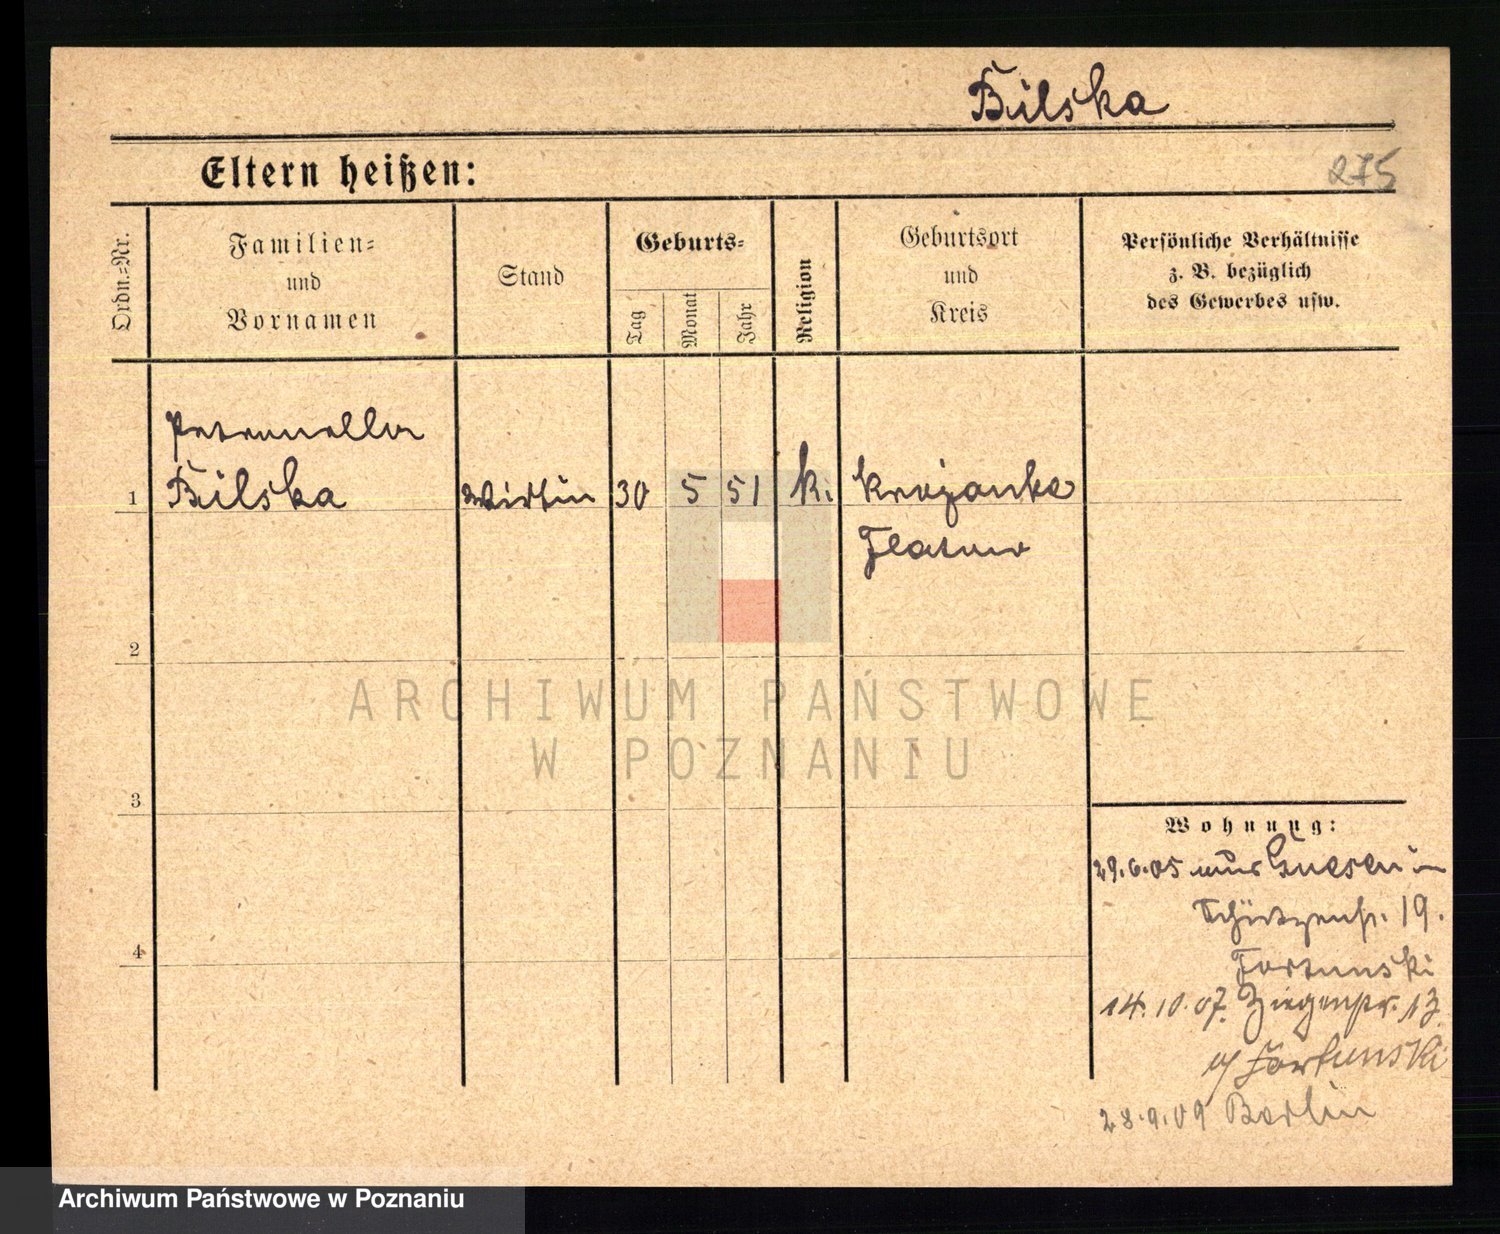 Bilska
Eltern heißen:
275
Ordn.=Nr.
Familien=
und
Vornamen
Stand
Geburts=
Tag
Monat
Jahr
Religion
Geburtsort
und
Kreis
Persönliche Verhältnisse
z. B. bezüglich
des Gewerbes usw.
Petronella
1 Bilska Wirtin 30 5 51 k. Krojanke
Flatow
2
3
4
ARCHIWUM PAŃSTWOWE
W POZNANIU
Wohnung:
29.6.05 aus Gnesen in
Schützenstr. 19.
Fortunski
14.10.07. Ziegenstr. 13.
b/ Fortunski
28.9.09 Berlin
Archiwum Państwowe w Poznaniu